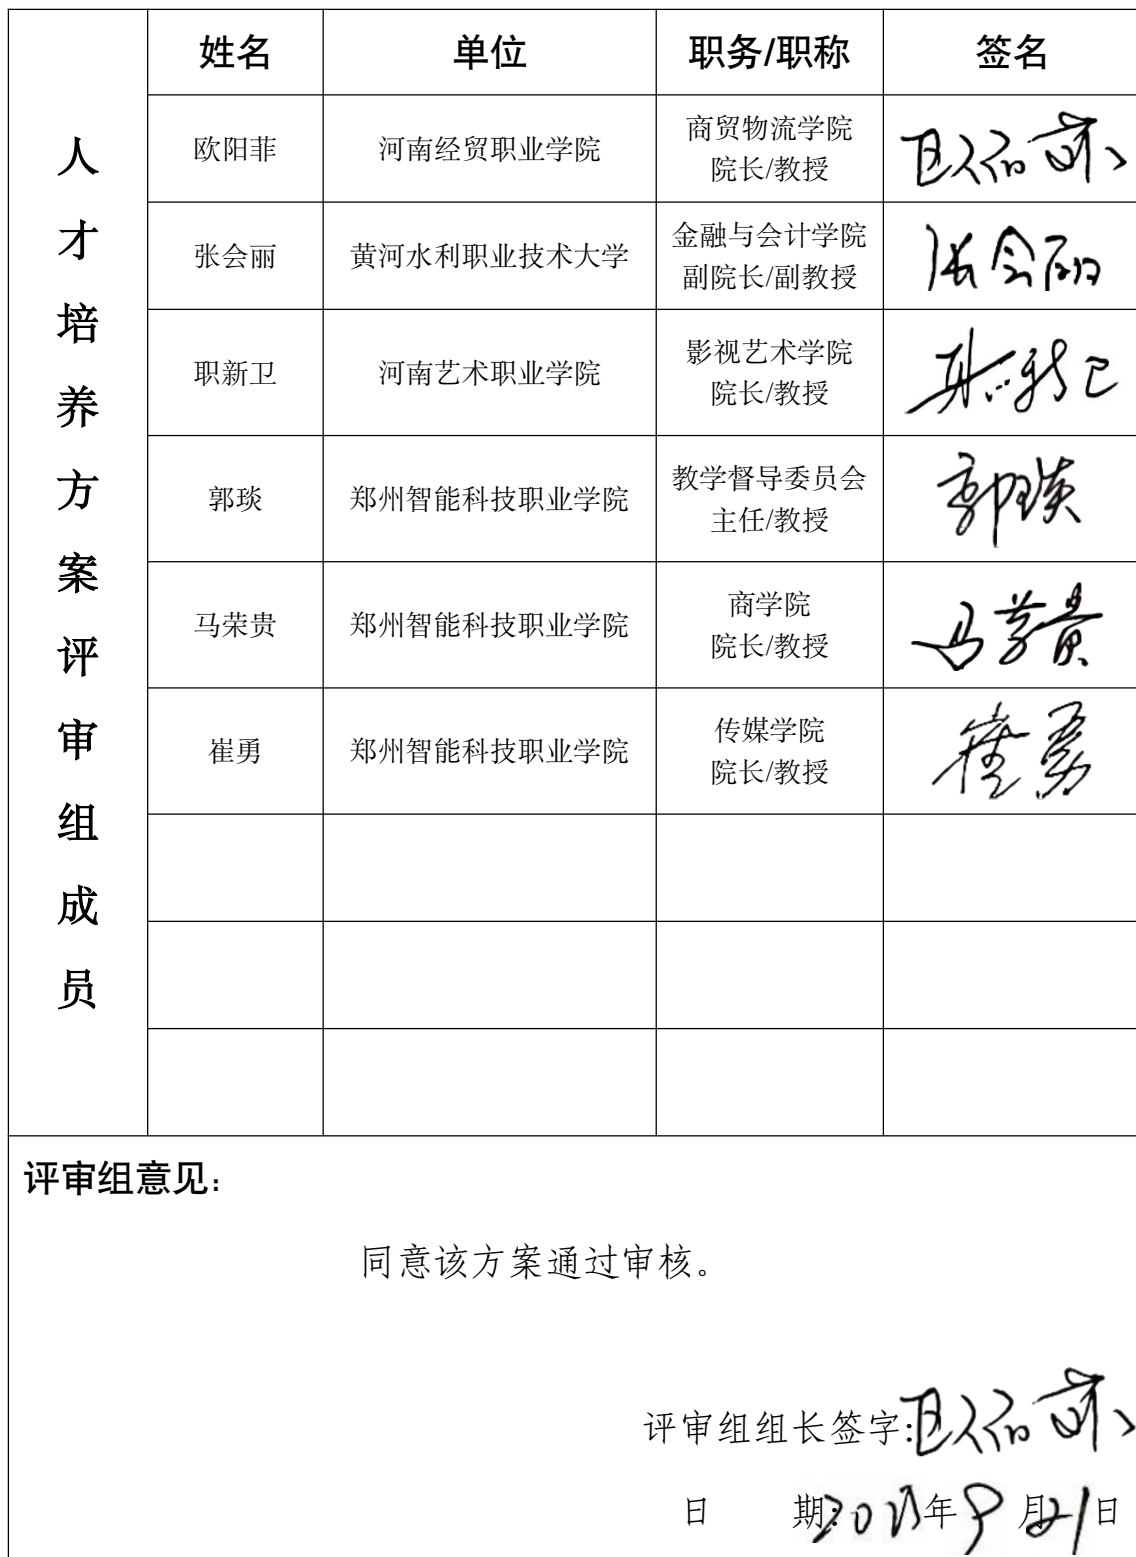 人才培养方案评审组成员
姓名 单位 职务/职称 签名
欧阳菲 河南经贸职业学院 商贸物流学院 欧阳菲
院长/教授
张会丽 黄河水利职业技术大学 金融与会计学院 张会丽
副院长/副教授
职新卫 河南艺术职业学院 影视艺术学院 职新卫
院长/教授
郭琰 郑州智能科技职业学院 教学督导委员会 郭琰
主任/教授
马荣贵 郑州智能科技职业学院 商学院 马荣贵
院长/教授
崔勇 郑州智能科技职业学院 传媒学院 崔勇
院长/教授
评审组意见：
同意该方案通过审核。
评审组组长签字:欧阳菲
日 期: 年9月21日